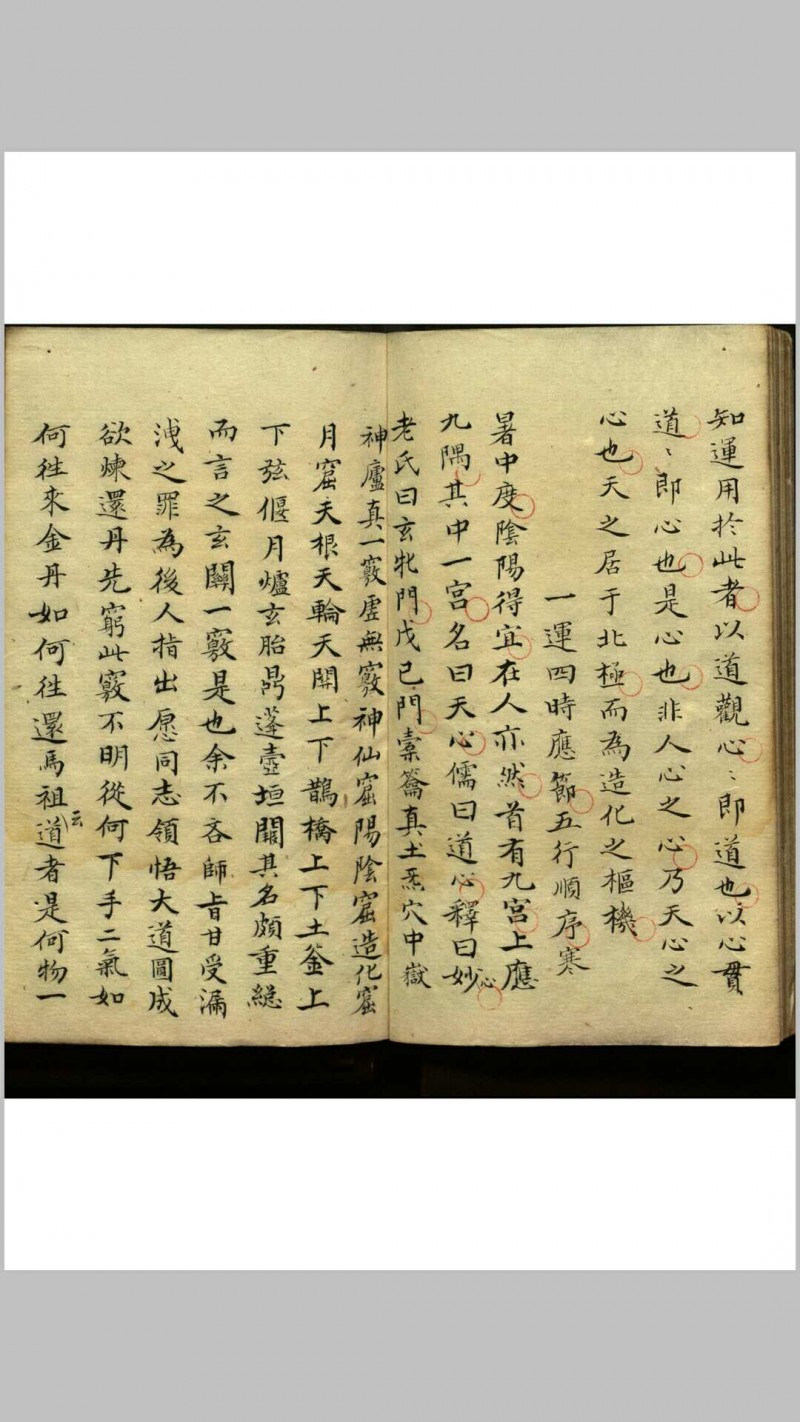 知運用於此者以道觀心〻即道也以心貫
道〻即心也是心也非人心之心乃天心之
心也天之居于北極而為造化之樞機
一運四時應節五行順序寒
暑中度陰陽得宜在人亦然首有九宮上應
九隅其中一宮名曰天心儒曰道心釋曰妙心
老氏曰玄牝門戊己門橐籥真土炁穴中嶽
神廬真一竅虛無竅神仙窟陽陰窟造化窟
月窟天根天輪天關上下鵲橋上下土釜上
下弦偃月爐玄胎鼎蓬壺垣闕其名頗重總
而言之玄關一竅是也余不吝師旨甘受漏
洩之罪為後人指出愿同志領悟大道圖成
欲煉還丹先窮此竅不明從何下手二氣如
何往來金丹如何往還馬祖云道者是何物一